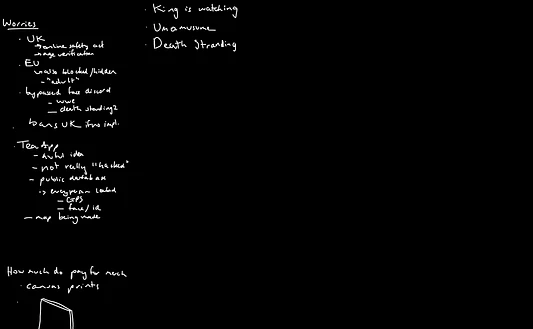 Worries
· UK
↳ online safety act
↳ age verification
· EU
↳ also blocked/hidden
- "adult"
· bypassed face discord
- wwe
- death stranding 2
· trans UK
· Tea App
- awful idea
- not really "hacked"
- public database
↳ everyperson leaked
- GPS
- face/id
- map being made
How much do pay for merch
· canvas prints
· King is watching
· Umamusume
· Death Stranding